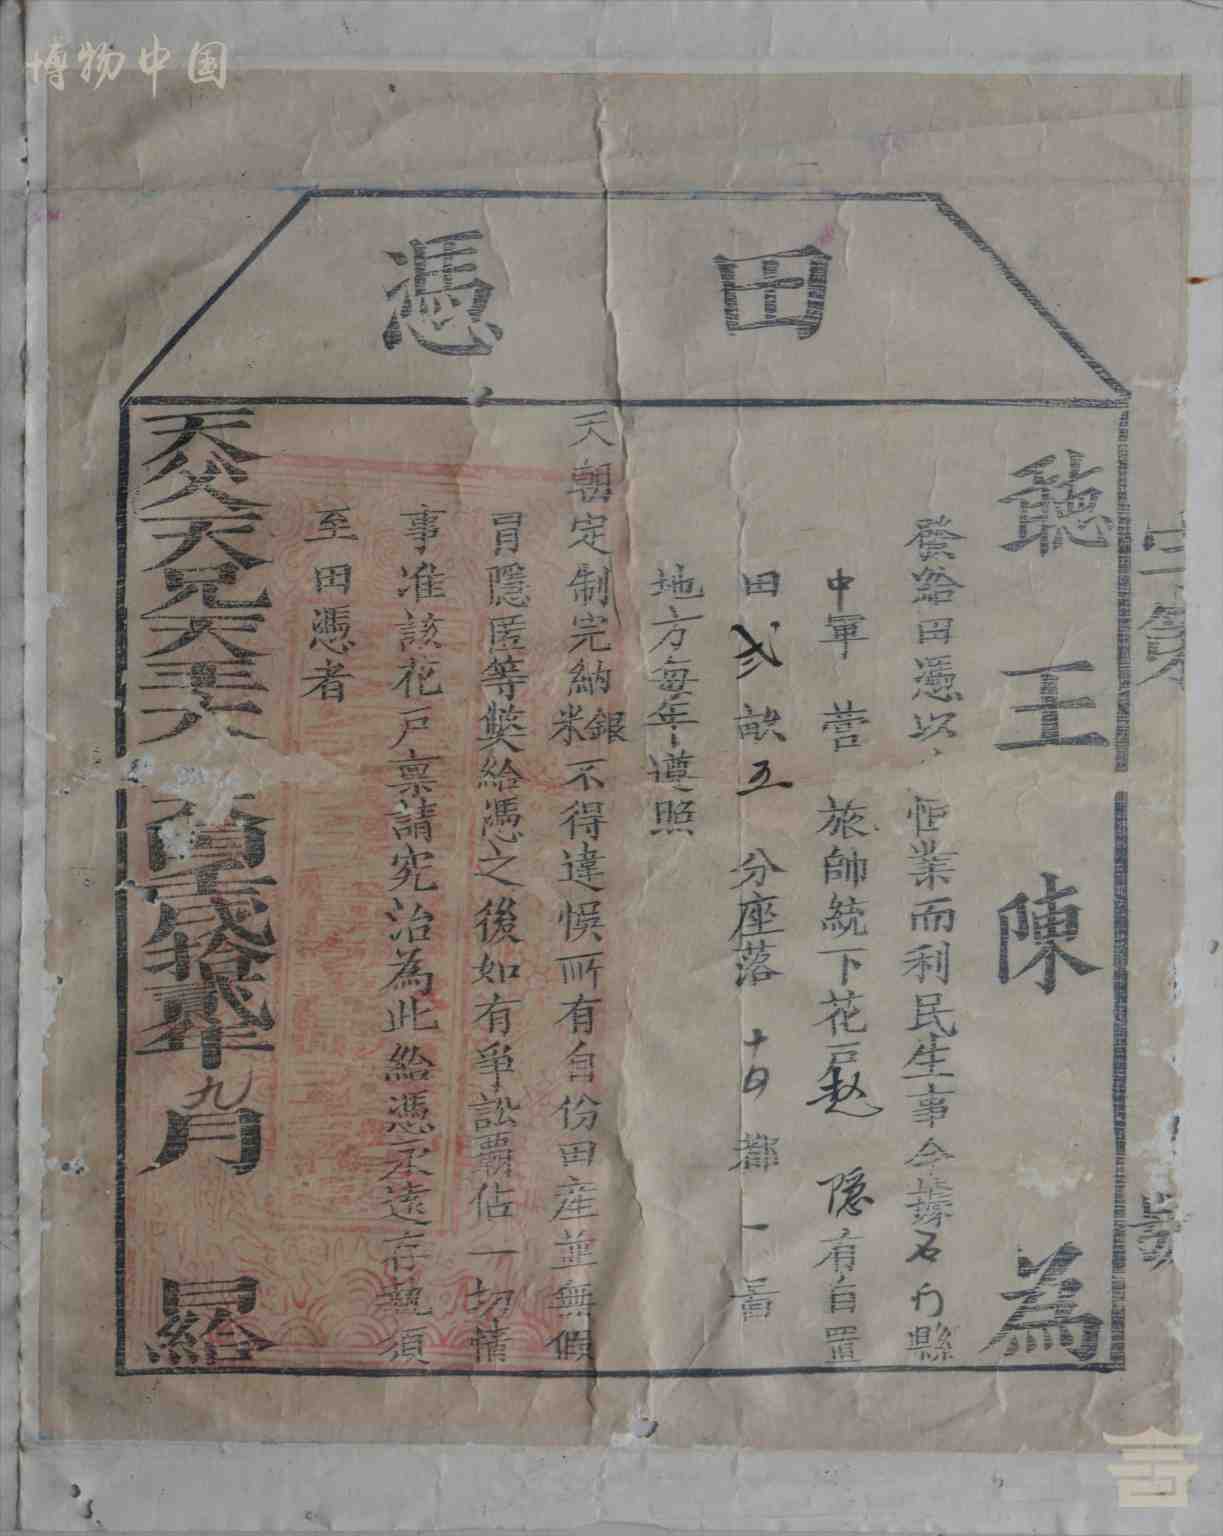 博物中国
田憑
字第 號
聽王陳為
發給田憑以 恒業而利民生事今據石门縣
中軍營旅師統下花户赵 隠有自置
田弐畝五分座落十四都一啚
地方每年遵照
天朝定制完納銀米不得違悞所有自份田産並無假
冐隱匿等獘給憑之後如有爭訟覇佔一切情
事准該花户禀請究治為此給憑永遠存執須
至田憑者
天父天兄天王太 國壬戌拾貳年九月 日給